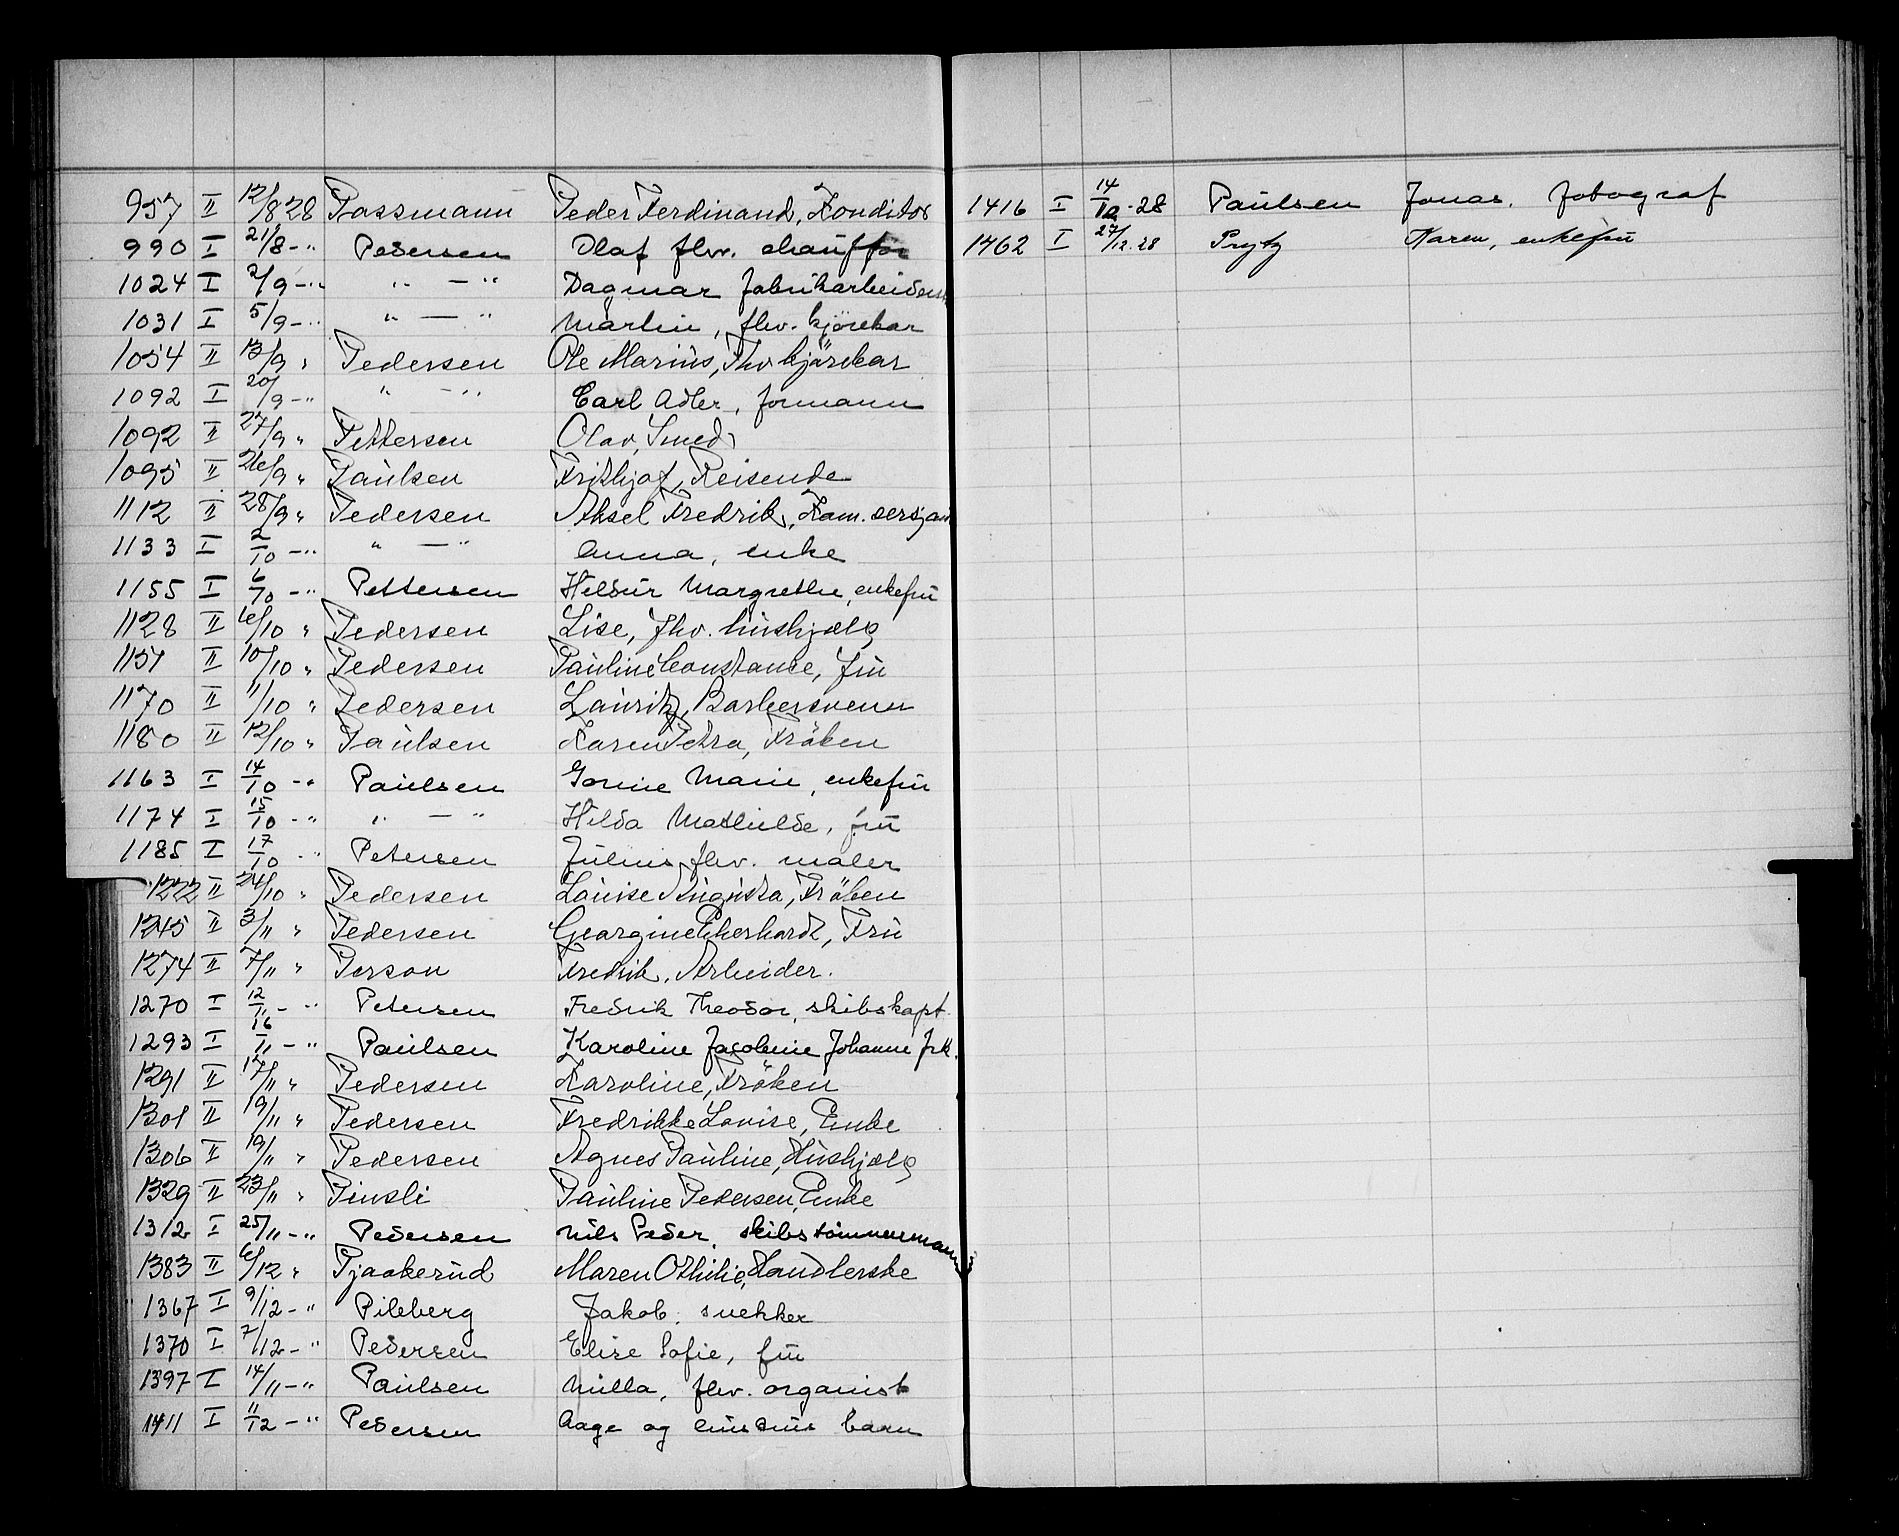 957 II 12/8 28 Passmann Peder Ferdinand, Konditor
990 I 21/8 - " Pedersen Olaf fhv. chauffør
1024 I 2/9 - " " — " Dagmar fabrikarbeiderske
1031 I 5/9 - " " — " Martin, fhv. kjørekar
1054 II 13/9 " Pedersen Ole Marius, Fhv kjørekar
1092 I 20/9 - " " — " Carl Adler, formann
1092 II 27/9 " Pettersen Olav, Smed
1095 II 26/9 " Paulsen Frithjof, Reisende
1112 II 28/9 " Pedersen Aksel Fredrik, Kom. sersjant
1133 I 2/10 - " " — " Anna, enke
1155 I 6/10 - " Pettersen Hildur Margrethe, enkefru
1128 II 6/10 " Pedersen Lise, fhv. hushjælp
1151 II 10/10 " Pedersen Pauline Constance, fru
1170 II 11/10 " Pedersen Lauritz, Barbersvenn
1180 II 12/10 " Paulsen Karen Petra, Fröken
1163 I 14/10 - " Paulsen Gorine Marie, enkefru
1174 I 15/10 - " " — " Hilda Mathilde, fru
1185 I 17/10 - " Petersen Julius fhv. maler
1222 II 24/10 " Pedersen Louise Augusta, Fröken
1245 II 3/11 " Pedersen Georgine Eherhardt, Fru
1274 II 7/11 " Person Fredrik, Arbeider.
1270 I 12/11 - " Petersen Fredrik Theodor, skibskapt.
1293 I 16/11 - " Paulsen Karoline Jacobine Johanne frk.
1291 II 17/11 " Pedersen Karoline, Fröken
1301 II 19/11 " Pedersen Fredrikke Lovise, Enke
1306 II 19/11 " Pedersen Agnes Pauline, Hushjælp
1329 II 23/11 " Pinsli Pauline Pedersen, Enke
1312 I 25/11 - " Pedersen Nils Peder, skibstømmermann
1383 II 6/12 " Pjaakerud Maren Othilie, Handlerske
1367 I 9/12 - " Pileberg Jakob, snekker
1370 I 7/12 - " Pedersen Elise Sofie, fru
1397 I 14/11 - " Paulsen Milla, fhv. organist
1411 I 11/12 - " Pedersen Aage og hustrus barn
1416 I 14/12 - 28 Paulsen Jonas. fotograf
1462 I 27/12.28 Prytz Karen, enkefru